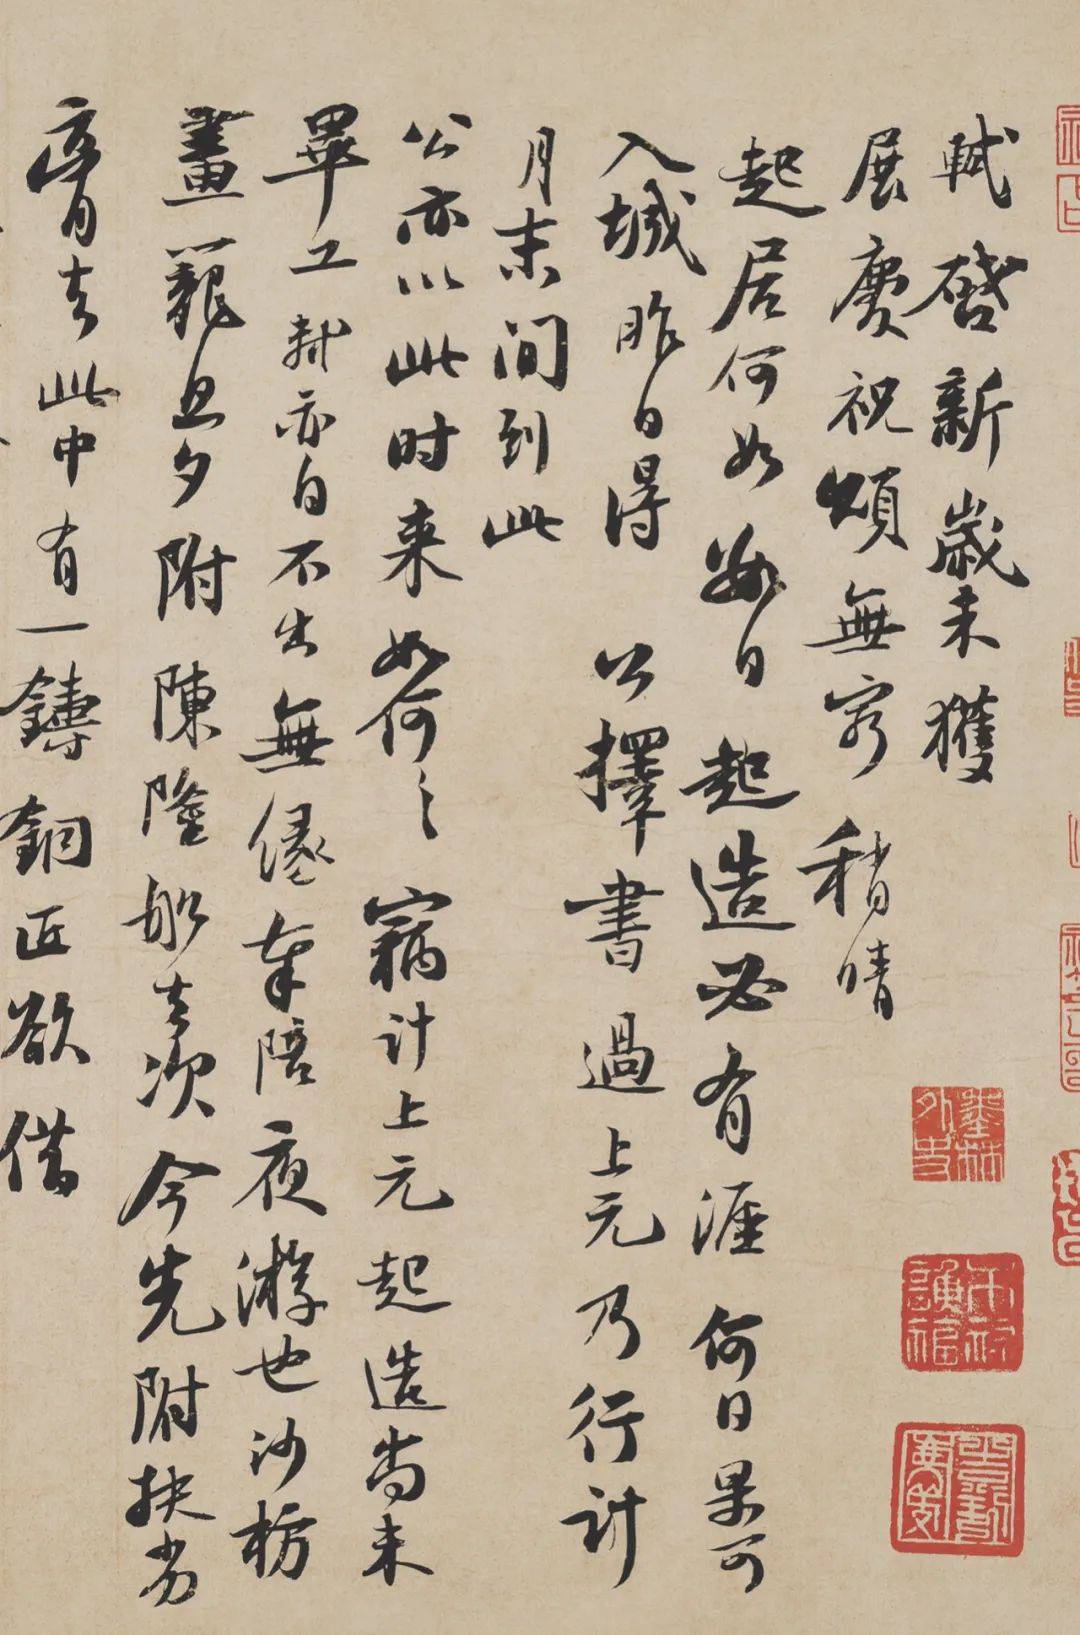 軾啓新歲未獲
展慶祝頌無窮稍晴
起居何如數日起造必有涯何日果可
入城昨日得公擇書過上元乃行計
月末間到此
公亦以此時來如何〻竊計上元起造尚未
畢工軾亦自不出無緣奉陪夜游也沙枋
畫籠旦夕附陳隆船去次今先附扶劣
膏去此中有一鑄銅匠欲借